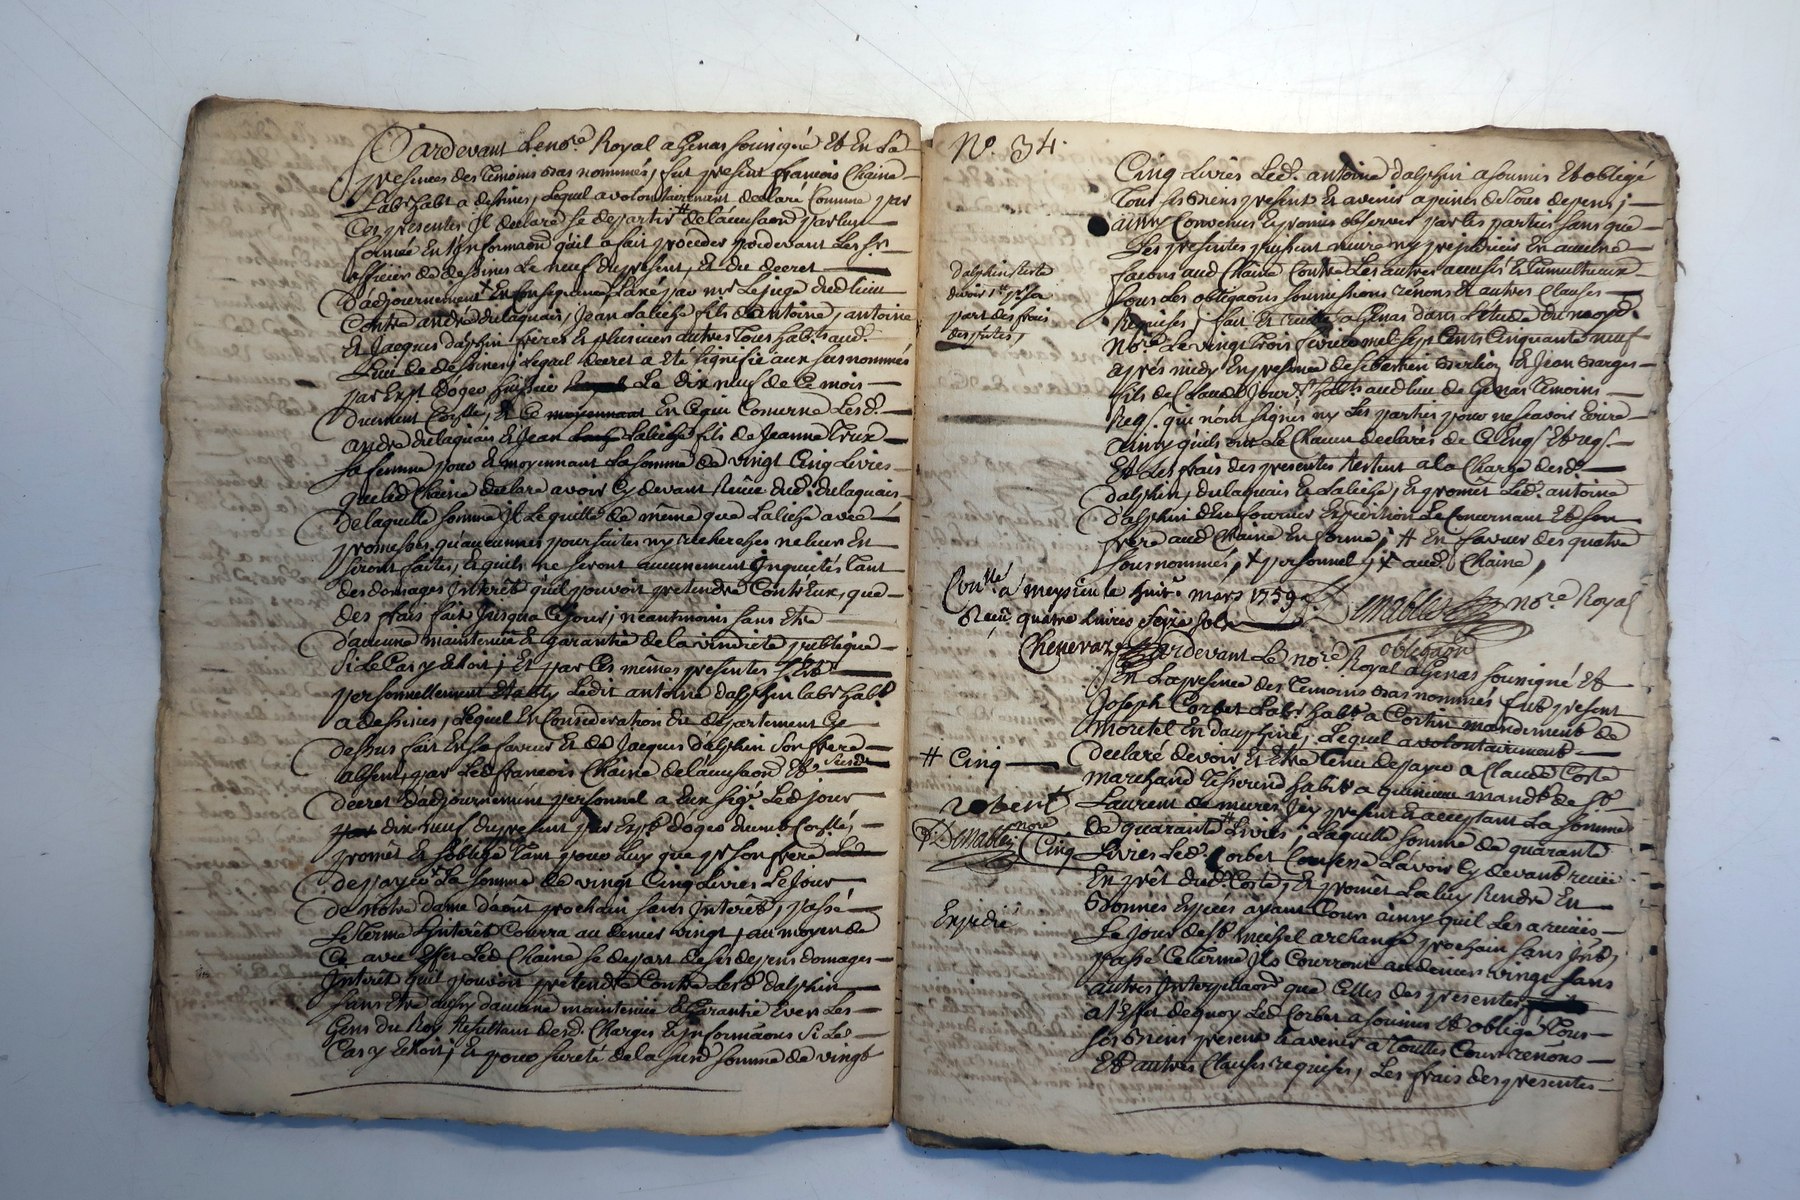 Pardevant Le nore Royal a Genas soussigné Et En la
presence des Temoins bas nommés, fut present francois Chaine
Labr habt a dessines, Lequel a volontairement declaré Comme par
Ces presentes Il declare se departir # de l'accusaon par luy
formée En Information qu'il a fait proceder pardevant Les srs
officiers de dessines Le neuf du present, Et du decret
D'adjournement x En Consequence Laxé par mr Le juge dud lieu
Contre andré dulaquais, Jean Laliche fils d'antoine, antoine
Et Jacques dalphin freres Et plusieurs autres Tous habts aud
Lieu de dessines; Lequel decret a Eté signifié aux susnommés
par Expt Dogeo huissier Le dix neuf de Ce mois
Duement Conllé, Et Ce moyennant En Ce qui Concerne Lesd.
andré dulaquais Et Jean Laliche fils de Jeanne
sa femme pour Et moyennant La somme de vingt Cinq Livres
que led Chaine declare avoir Cy devant Reçue dud. dulaquais
de laquelle somme Il Le quitte de même que Laliche avec
promesse qu'aucunes poursuites ny recherches ne leur En
seront faites, Et quils ne seront aucunement Inquietés tant
des domages Interêt quil pouvoit pretendre Contr'Eux, que
des frais fait Jusqua Ce Jour, neantmoins sans Etre
d'aucune maintenüe Et garantie de la vindicte publique
si Le Cas y Echoit; Et par Ces mêmes presentes s'Est
personnellement Etably Ledit antoine dalphin labr habt
a dessines, Lequel En Consideration du departement Cy
dessus fait En sa faveur Et de Jacques dalphin son frere
absent, par Led francois Chaine de l'accusaon Et susd
decret d'adjournement personnel a Eux sigé Led jour
dix neuf du present par Expt dogeo duemt Conllé,
promêt Et s'oblige tant pour Luy que pr son frere
de payer La somme de vingt Cinq Livres Le Jour
de Notre dame d'août prochain sans Interêt, passé
Le Terme L'interêt Courra au denier vingt, au moyen de
Ce avec Effet Led Chaine se depart de ses depens domages
Interêt quil pouvoit pretendre Contre Lesd dalphin
sans Etre aussy d'aucune maintenüe Et Garantie Envers Les
Gens du Roy Resultant desd. Charges Et Informaons si Le
Cas y Echoit; Et pour sureté de la susd somme de vingt
No. 34.
Cinq Livres Led. antoine dalphin a soumis Et obligé
Tous ses Biens present Et avenir a peines de Tous depens;
ainsy Convenus Et promis observer par les parties sans que
Les presentes puissent nuire ny prejudicier En aucune
facons aud Chaine Contre Les autres accusés Et Tumultueux
sous Les obligaons soumissions renons Et autres Clauses
Requises, fait Et recitté a Genas dans L'Etude du no
Nore Le vingt Trois fevrier mil sept Cents Cinquante neuf
après midy En presence de sebastien Et Jean
fils de Claude Jour. habts aud lieu de Genas Temoins
Req. qui n'ont signés ny Les parties pour ne scavoir Ecrire
ainsy quils ont Le Chacun declarés de Ce Enq. Et req.
Et Les frais des presentes restent a la Charge desd
dalphin, dulaquais Et Laliche, Et promêt Led. antoine
dalphin d'En fournir Expedition Le Concernant Et son
frere aud Chaine En forme; # En faveur des quatre
susnommés, x personnel, x aud Chaine,
dalphin
devoir
part des frais
des pntes,
Conllé a meyzieu le huit. mars 1759
Reçu quatre livres seize sols
Chenevaz
Demablis nore Royal
obligaon
Pardevant Le nore Royal a Genas soussigné Et
En La presence des Temoins bas nommés fut present
Joseph Corbet Labr habt a mandement de
Morêtel En dauphiné, Lequel a volontairement
declaré devoir Et Etre Tenu de payer a Claude Coste
marchand Tisserand habitt a mandt de St
Laurent de mures, Icy present Et acceptant La somme
de quarante # Livres; Laquelle somme de quarante
Cinq Livres Led. Corbet Confesse L'avoir Cy devant reçüe
En prêt dud. Coste, Et promêt La luy Rendre En
Bonnes Especes ayant Cour ainsy quil Les a reçües
Le Jour de St michel archange prochain sans Intt,
passé Ce terme Ils Courront au denier vingt sans
autres Interpellaon que Celles des presentes
a l'Effet de quoy Led Corbet a soumis Et obligé Tous
ses Biens present Et avenir a Touttes Cours renons
Et autres Clauses requises, Les frais des presentes
# Cinq
Demablis nore
Expedié